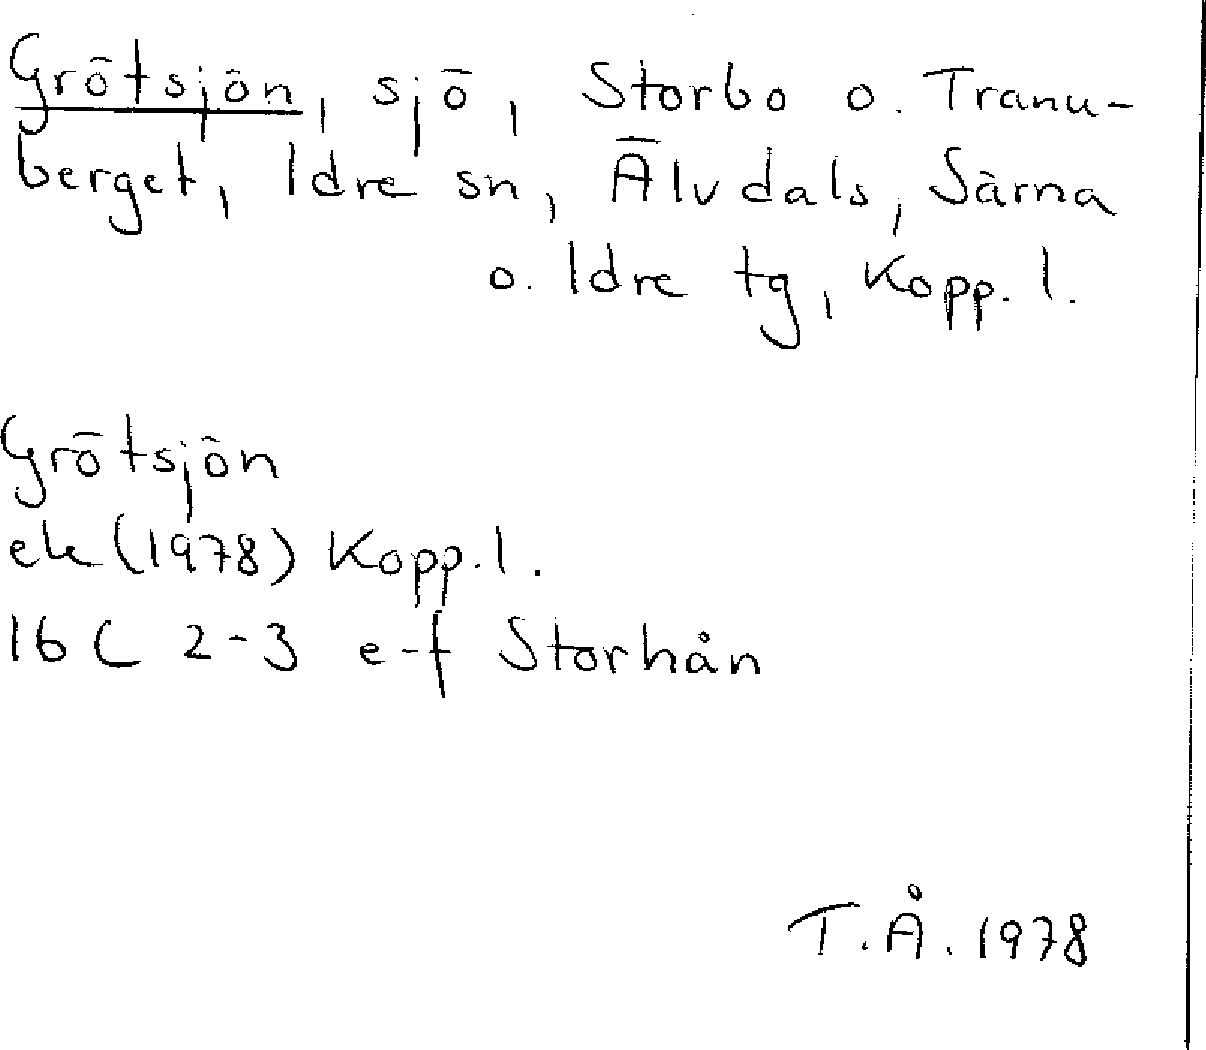 Grötsjön, sjö, Storbo o. Tranu-
berget, Idre sn, Älvdals, Särna
o. Idre tg, Kopp. l.
Grötsjön
ek (1978) Kopp. l.
16 C 2-3 e-f Storhån
T.Å. 1978